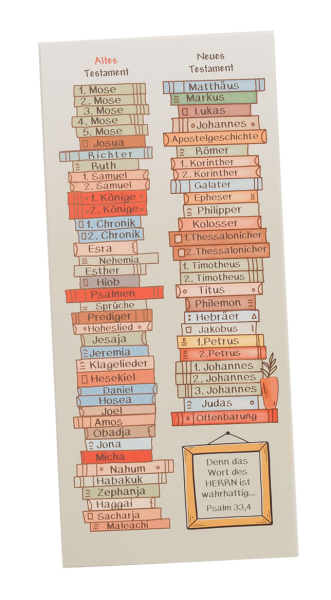 Altes
Testament
1. Mose
2. Mose
3. Mose
4. Mose
5. Mose
Josua
Richter
Ruth
1. Samuel
2. Samuel
1. Könige
2. Könige
1. Chronik
2. Chronik
Esra
Nehemia
Esther
Hiob
Psalmen
Sprüche
Prediger
Hoheslied
Jesaja
Jeremia
Klagelieder
Hesekiel
Daniel
Hosea
Joel
Amos
Obadja
Jona
Micha
Nahum
Habakuk
Zephanja
Haggai
Sacharja
Maleachi
Neues
Testament
Matthäus
Markus
Lukas
Johannes
Apostelgeschichte
Römer
1. Korinther
2. Korinther
Galater
Epheser
Philipper
Kolosser
1.Thessalonicher
2.Thessalonicher
1. Timotheus
2. Timotheus
Titus
Philemon
Hebräer
Jakobus
1.Petrus
2.Petrus
1. Johannes
2. Johannes
3. Johannes
Judas
Offenbarung
Denn das
Wort des
HERRN ist
wahrhaftig...
Psalm 33,4